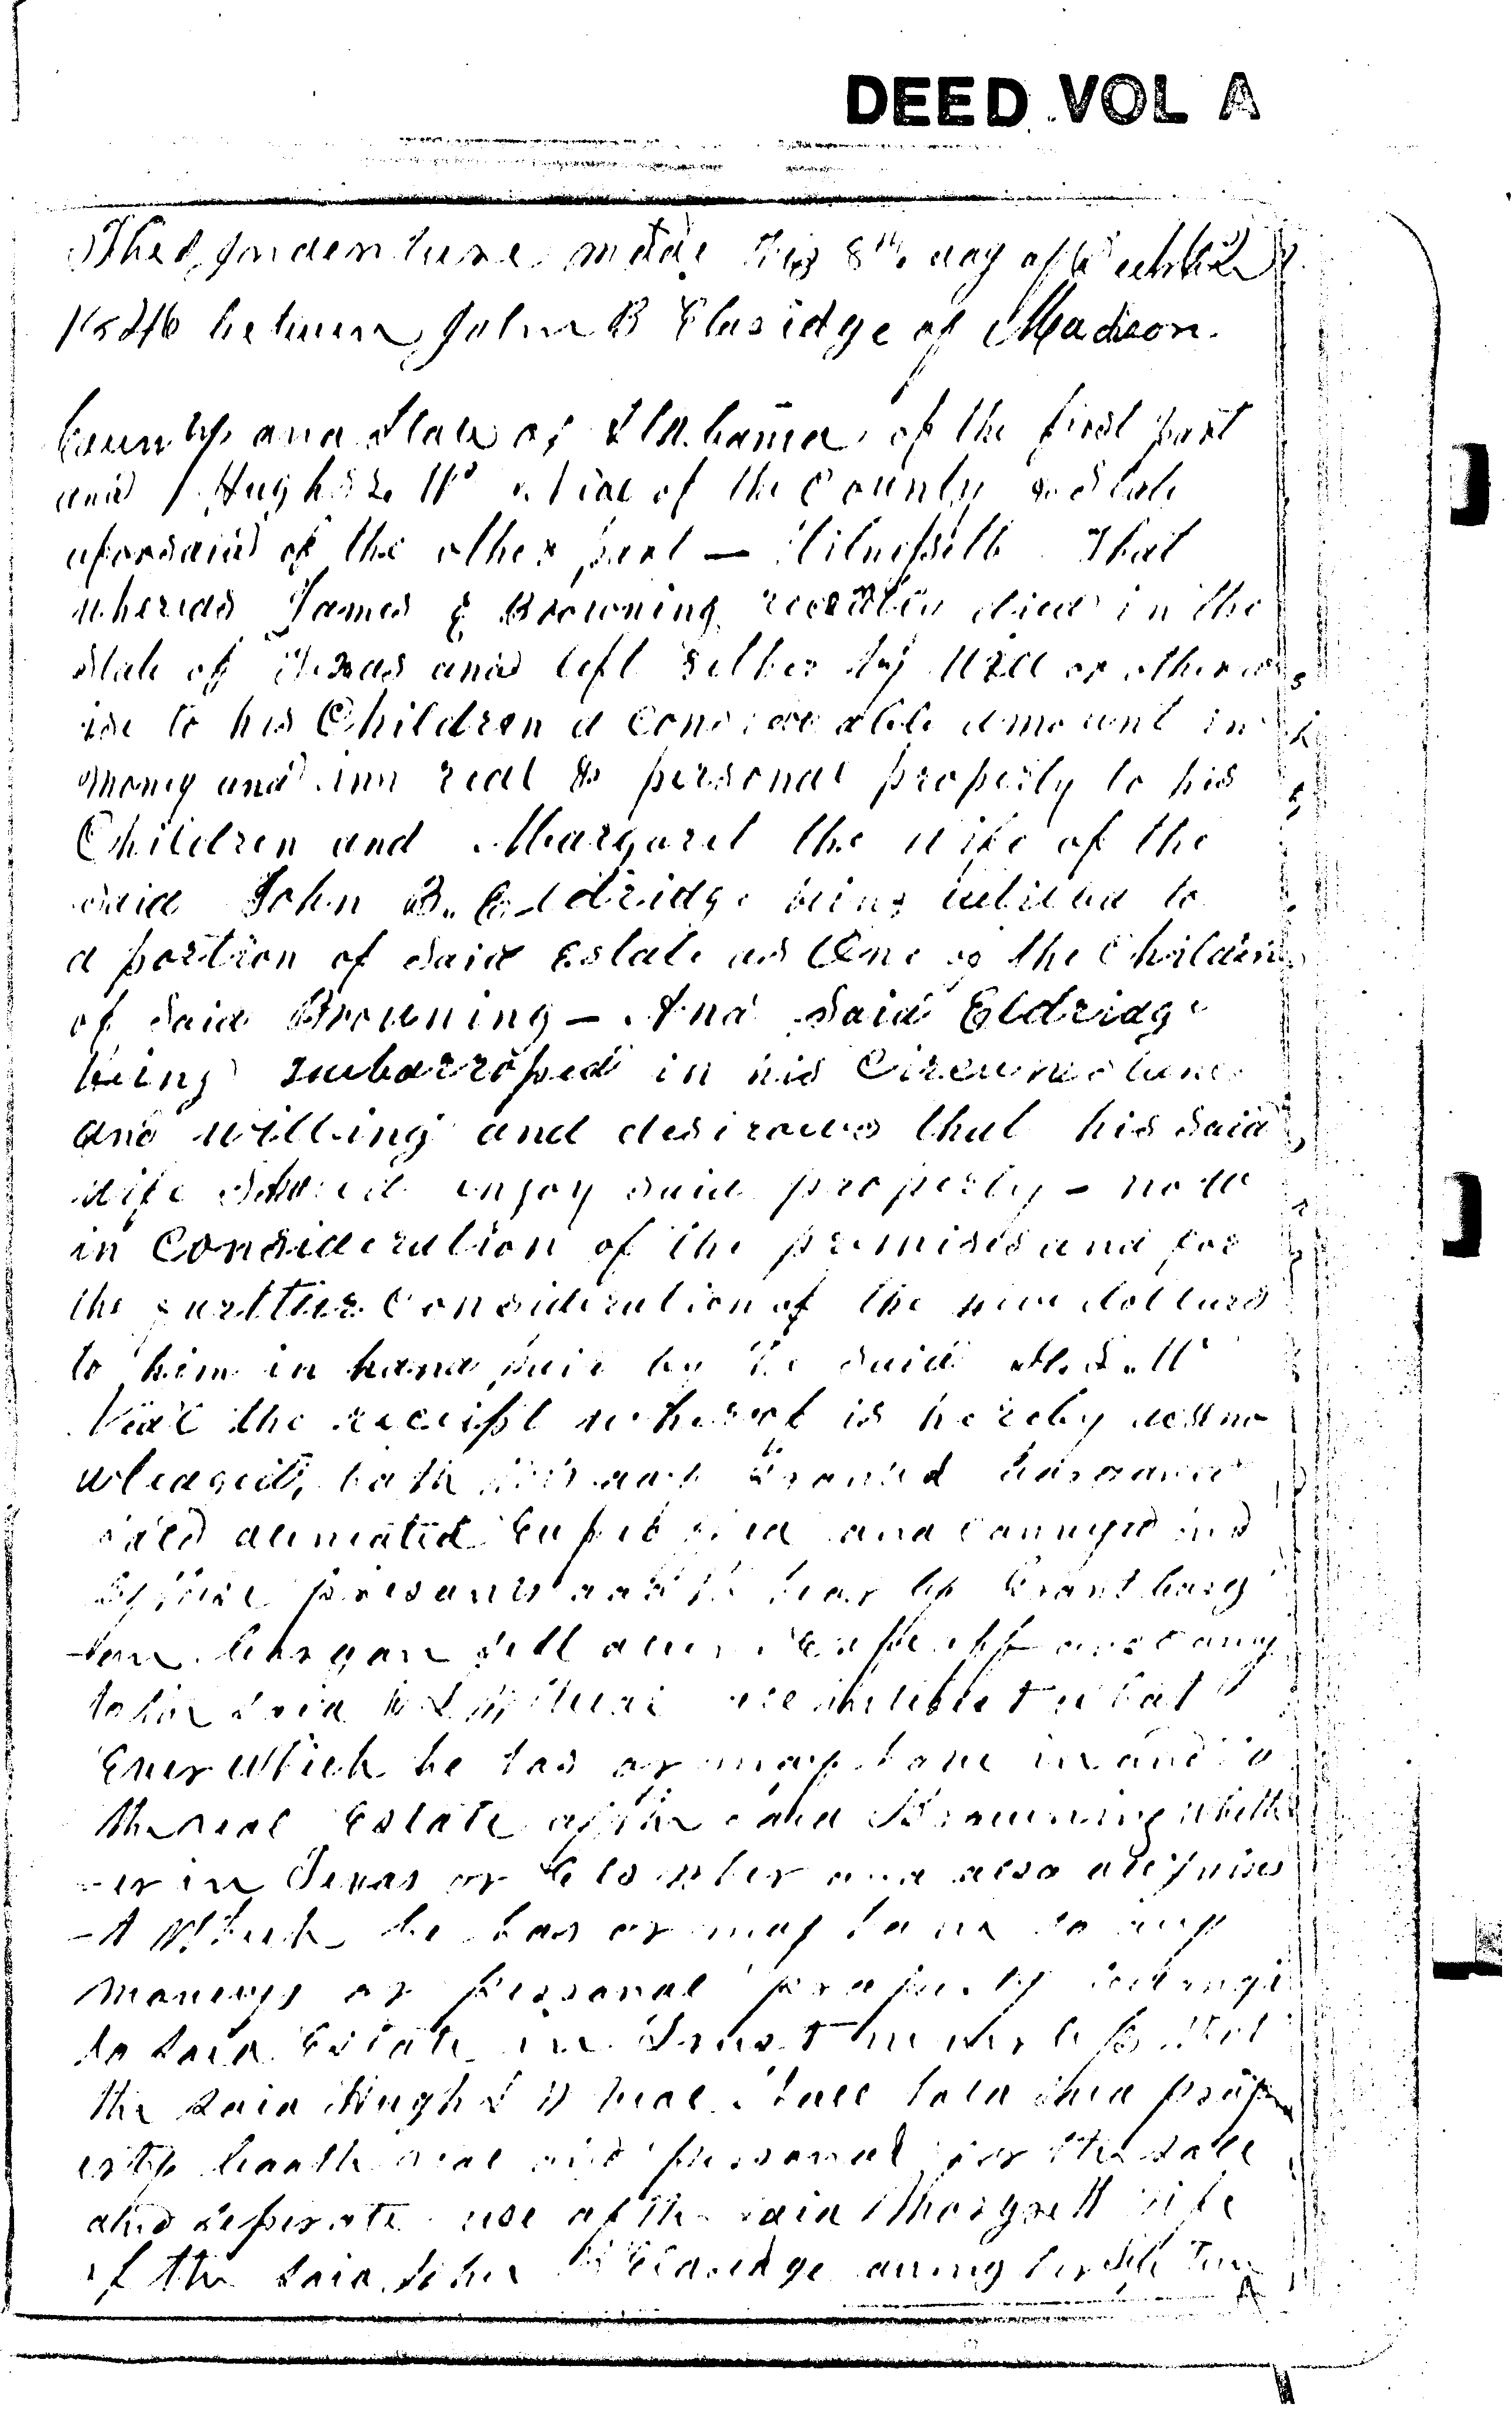 DEED VOL A
This Indenture made this 8th day of
1846 between John B Eldridge of Madison
County and State of Alabama of the first part
and Hugh L. W. of the County & State
aforsaid of the other part — Witnesseth That
whereas James E Browning recently died in the
State of Texas and left either by Will or otherw
ise to his Children a considerable amount in
money and inn real & personal property to his
Children and Margaret the wife of the
said John B. Eldridge being intitled to
a portion of said Estate as One of the Children
of said Browning — And said Eldridge
being imbarrassed in his Circumstances
and willing and desirous that his said
wife should enjoy said property — now
in Consideration of the premises and for
the further Consideration of the dollars
to him in hand paid by the said H. L. W
the receipt whereof is hereby ackno
wledged, hath this day Granted bargained
aleniated and conveyed and
by these presents doth hear by Grant barg
bargan sell and convey
to him said H L W all interest what
Ever which he has or may have in and to
the real Estate of the said Browning wheth
er in Texas or Elswher and also all inters
t Which he has or may have to any
moneys or personal property belonging
to said Estate in Trust never less that
the said Hugh L W shall hold said prop
erty booth real and personal for the sole
and seperate use of the said Margrett wife
of the said John B Eldridge during her life time